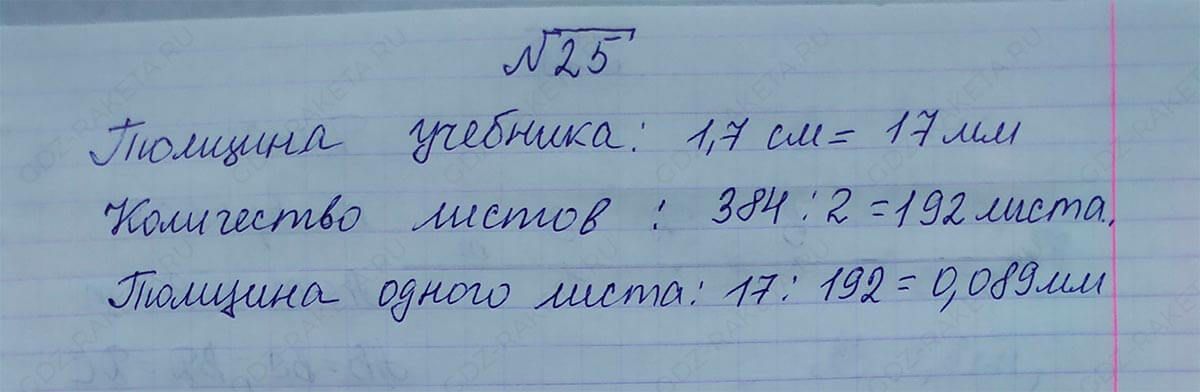 №25
Толщина учебника: 1,7 см = 17 мм
Количество листов : 384 : 2 = 192 листа.
Толщина одного листа: 17 : 192 = 0,089 мм